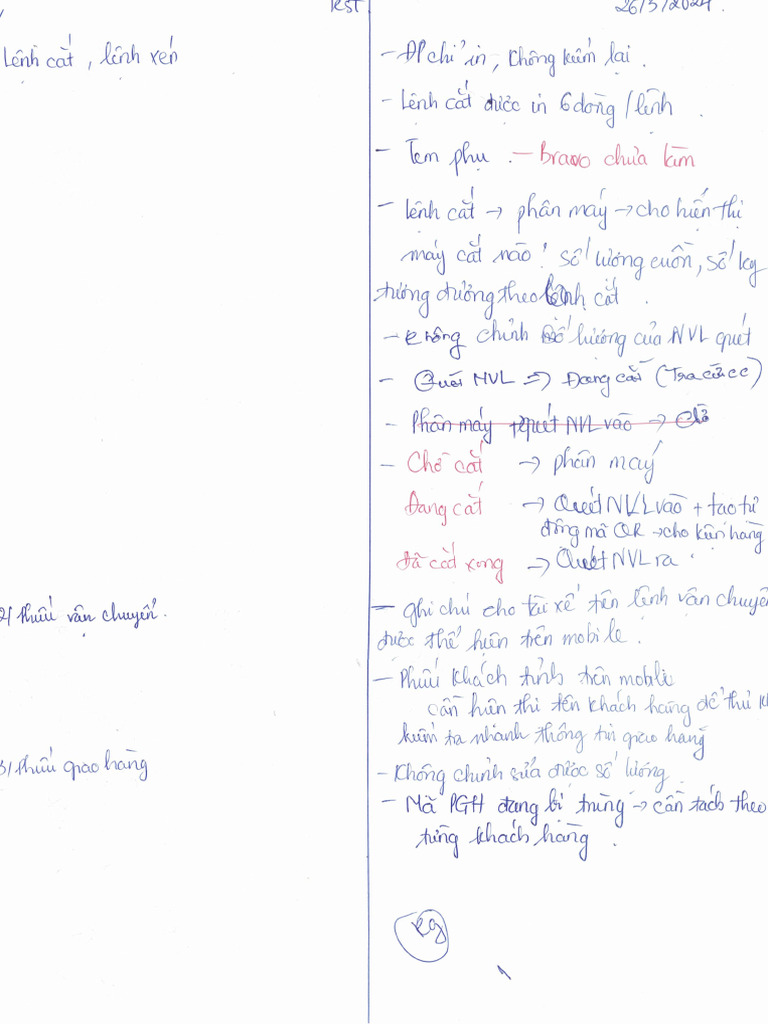 KST
26/3/2024.
Lệnh cắt, lệnh xén
- ĐP chỉ in, không kiểm lại.
- Lệnh cắt được in 6 dòng/lệnh.
- Tem phụ. - Bravo chưa làm
- Lệnh cắt → phân máy → cho hiển thị
máy cắt nào! số lượng cuồn, số kg
tương đương theo lệnh cắt.
- Không chỉnh số lượng của NVL quét
- Quét NVL => Đang cắt (Tra cứu cc)
- Phân máy quét NVL vào →
- Chờ cắt → phân máy
Đang cắt → Quét NVL vào + tạo tự
động mã QR → cho kiện hàng
đã cắt xong → Quét NVL ra.
2/ Phiếu vận chuyển.
- ghi chú cho tài xế trên lệnh vận chuyển
được thể hiện trên mobile.
- Phiếu khách tỉnh trên mobile
cần hiển thị tên khách hàng để thủ k
kiểm tra nhanh thông tin giao hàng
3/ Phiếu giao hàng
- Không chỉnh sửa được số lượng.
- Mã PGH đang bị trùng → cần tách theo
từng khách hàng.
kg